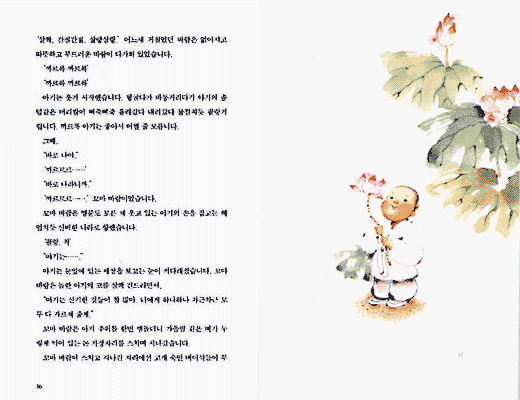 '살짝, 간질간질, 살랑살랑.' 어느새 거칠었던 바람은 없어지고
따뜻하고 부드러운 바람이 다가와 있었습니다.
'까르륵 까르륵'
'까르륵 까르륵'
아기는 웃기 시작했습니다. 뒹굴다가 바둥거리다가 아기의 솜
털같은 머리털이 삐죽삐죽 올라갔다 내려갔다 물결치듯 찰랑거
립니다. 까르륵 아기는 좋아서 어쩔 줄 모릅니다.
그때,
"바로 나야."
'까르르르……'
"바로 나라니까."
'까르르르……' 꼬마 바람이었습니다.
꼬마 바람은 영문도 모른 채 웃고 있는 아기의 손을 잡고는 헤
엄치듯 신비한 나라로 향했습니다.
'찰랑, 척'
"여기는……"
아기는 눈앞에 있는 세상을 보고는 눈이 커다래졌습니다. 꼬마
바람은 놀란 아기의 코를 살짝 건드리면서,
"여기는 신기한 것들이 참 많아. 너에게 하나하나 차근차근 모
두 다 가르쳐 줄게."
꼬마 바람이 아기 주위를 한번 맴돌더니 가을빛 같은 벼가 누
렇게 익어 있는 논 가장자리를 스치며 지나갔습니다.
꼬마 바람이 스치고 지나간 자리에선 고개 숙인 벼이삭들이 부
36